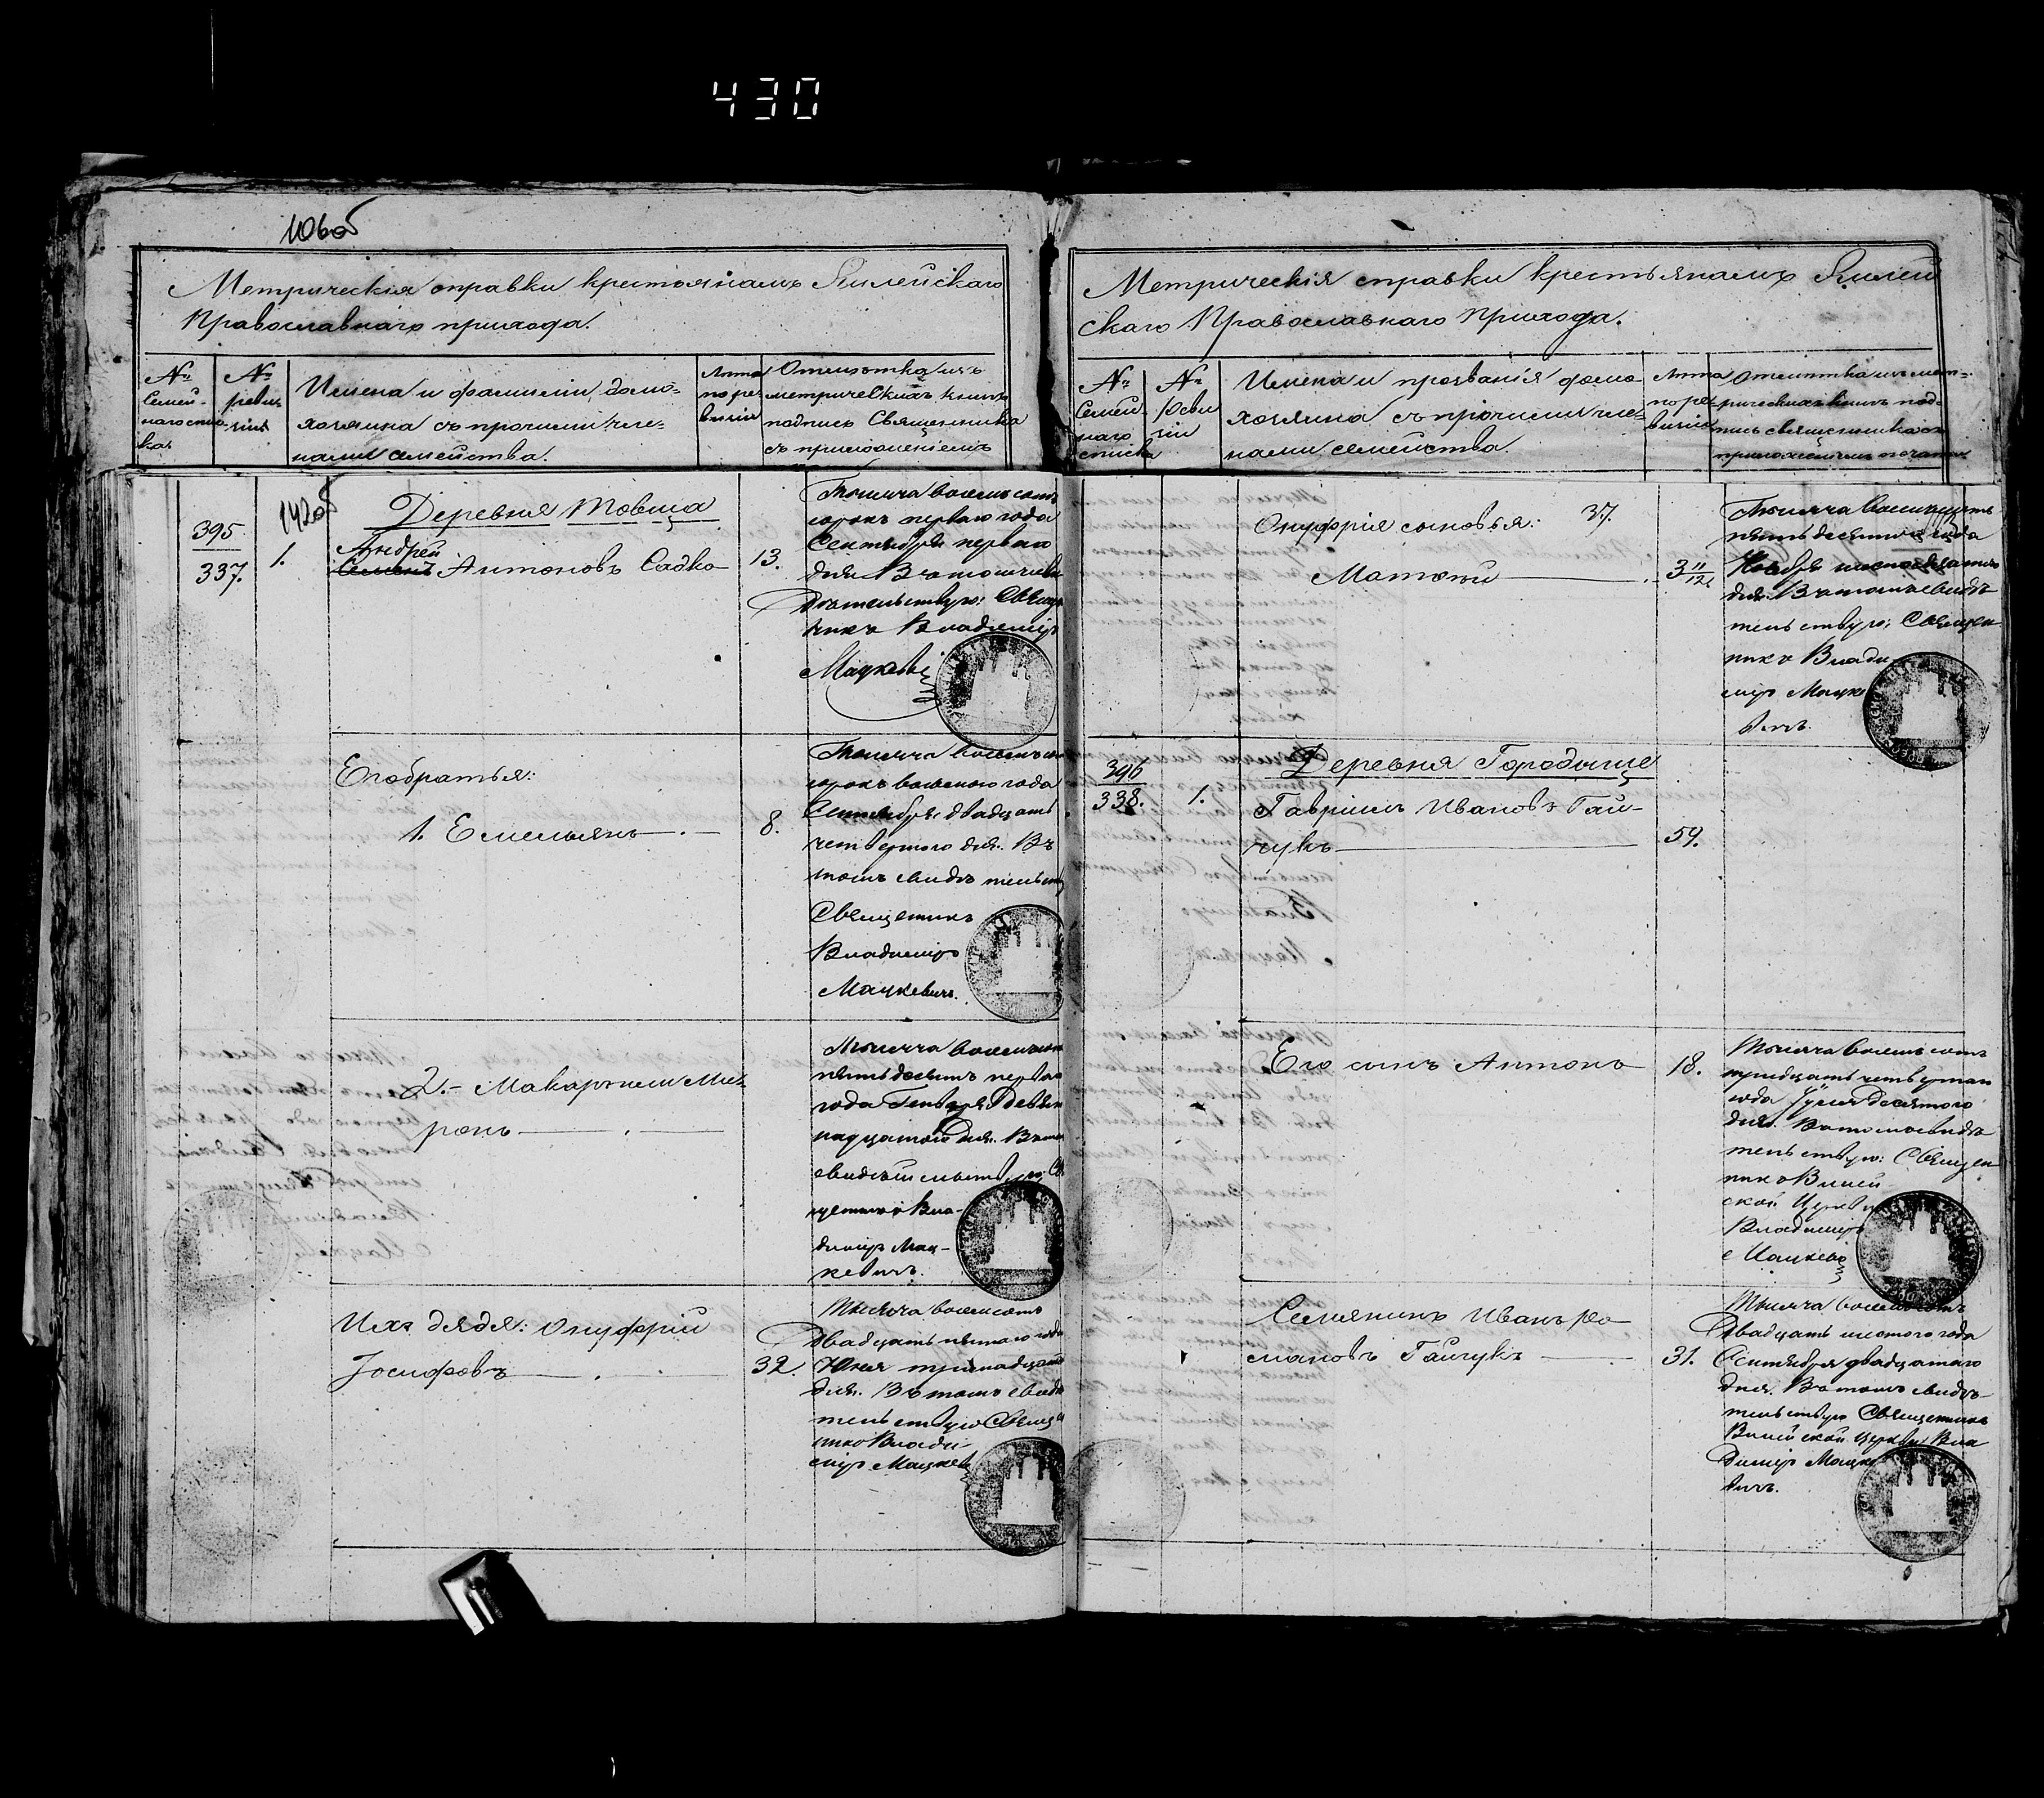 430
106об
Метрическія справки крестьянамъ Вилейскаго
Православнаго прихода.
№ Семей-наго спис-ка
№ реви-зіи
Имена и фамиліи домо-
хозяина съ прочими чле-
нами семейства.
Лѣта по ре-визіи
Отмѣтка изъ
метрическихъ книгъ
подпись Священника
съ приложеніемъ
395
337.
142об
1.
Деревня Товща
Андрей
Семенъ Антоновъ Садко
13.
Тысяча восемьсотъ
сорокъ перваго года
Сентября перваго
дня. Въ томъ свидѣ
тельствую: Священ
никъ Владиміръ
Мацкеви
Его братья:
1. Емельянъ
8.
Тысяча восемьсотъ
сорокъ восьмого года
Сентября двадцать
четвертого дня. Въ
томъ свидѣтельств
Священникъ
Владиміръ
Мацкевичъ.
2. Макаръ или Ми-
ронъ
Тысяча восемьсотъ
пятьдесятъ перваго
года Генваря Девят
надцатого дня. Въ том
свидѣтельствую: Св
щенникъ Вла-
диміръ Мац-
кевичъ.
Ихъ дядя: Онуфрій
Іосифовъ
32.
Тысяча восемьсотъ
двадцать пятаго года
Юня тринадцато
дня. Въ томъ свидѣ
тельствую Священ
никъ Влади-
міръ Мацкев
Метрическія справки крестьянамъ Вилей
скаго Православнаго Прихода.
№ Семей-наго списка
№ Реви зіи
Имена и прозванія домо
хозяина съ прочими чле-
нами семейства.
Лѣта по ре-визіи
Отмѣтка изъ мет-
рическихъ книгъ под-
пись священника съ
приложеніемъ печати
Онуфрія сыновья: 37.
Матвѣй
3 11/12
Тысяча восемьсотъ
пятьдесятого года
Ноября шестнадцатого
дня. Въ томъ свидѣ
тельствую: Священ-
никъ Влади
міръ Мацке
вичъ.
396
338.
1.
Деревня Городище
Гавріилъ Ивановъ Гай-
чукъ
59.
Его сынъ Антонъ
18.
Тысяча восемьсотъ
тридцать четвертаго
года Іулія десятого
дня. Въ томъ свидѣ
тельствую: Священ
никъ Вилей
ской Церкви
Владиміръ
Мацкеви
Семянинъ Иванъ Ро
мановъ Гайчукъ
31.
Тысяча восемьсотъ
двадцать шестого года
Сентября двадцатаго
дня. Въ томъ свидѣ-
тельствую Священникъ
Вилейской церкви Вла
диміръ Мацке
вичъ.